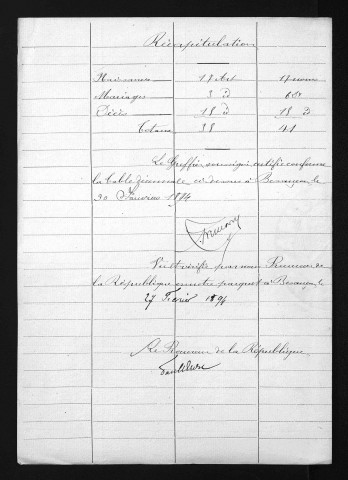 Récapitulation
Naissances 17 Act 17 noms
Mariages 3 d 6 d
Décès 18 d 18 d
Totaux 38 41
Le Greffier soussigné certifie conforme
la table décennale ci-dessus à Besançon le
30 Janvier 1894
Vu et vérifié par nous Procureur de
la République en notre parquet à Besançon le
27 Février 1894
Le Procureur de la République